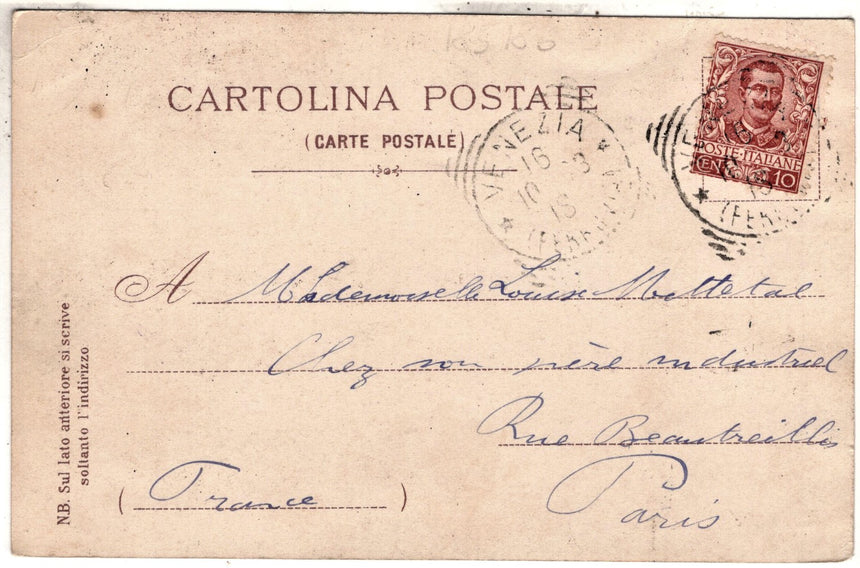 CARTOLINA POSTALE
(CARTE POSTALE)
VENEZIA
16 - 3
10
18
(FERROVIA)
POSTE·ITALIANE
CENT 10
A Mademoiselle Louise Mottetal
Chez son père industriel
Rue Beautreillis
Paris
(France)
N.B. Sul lato anteriore si scrive
soltanto l'indirizzo